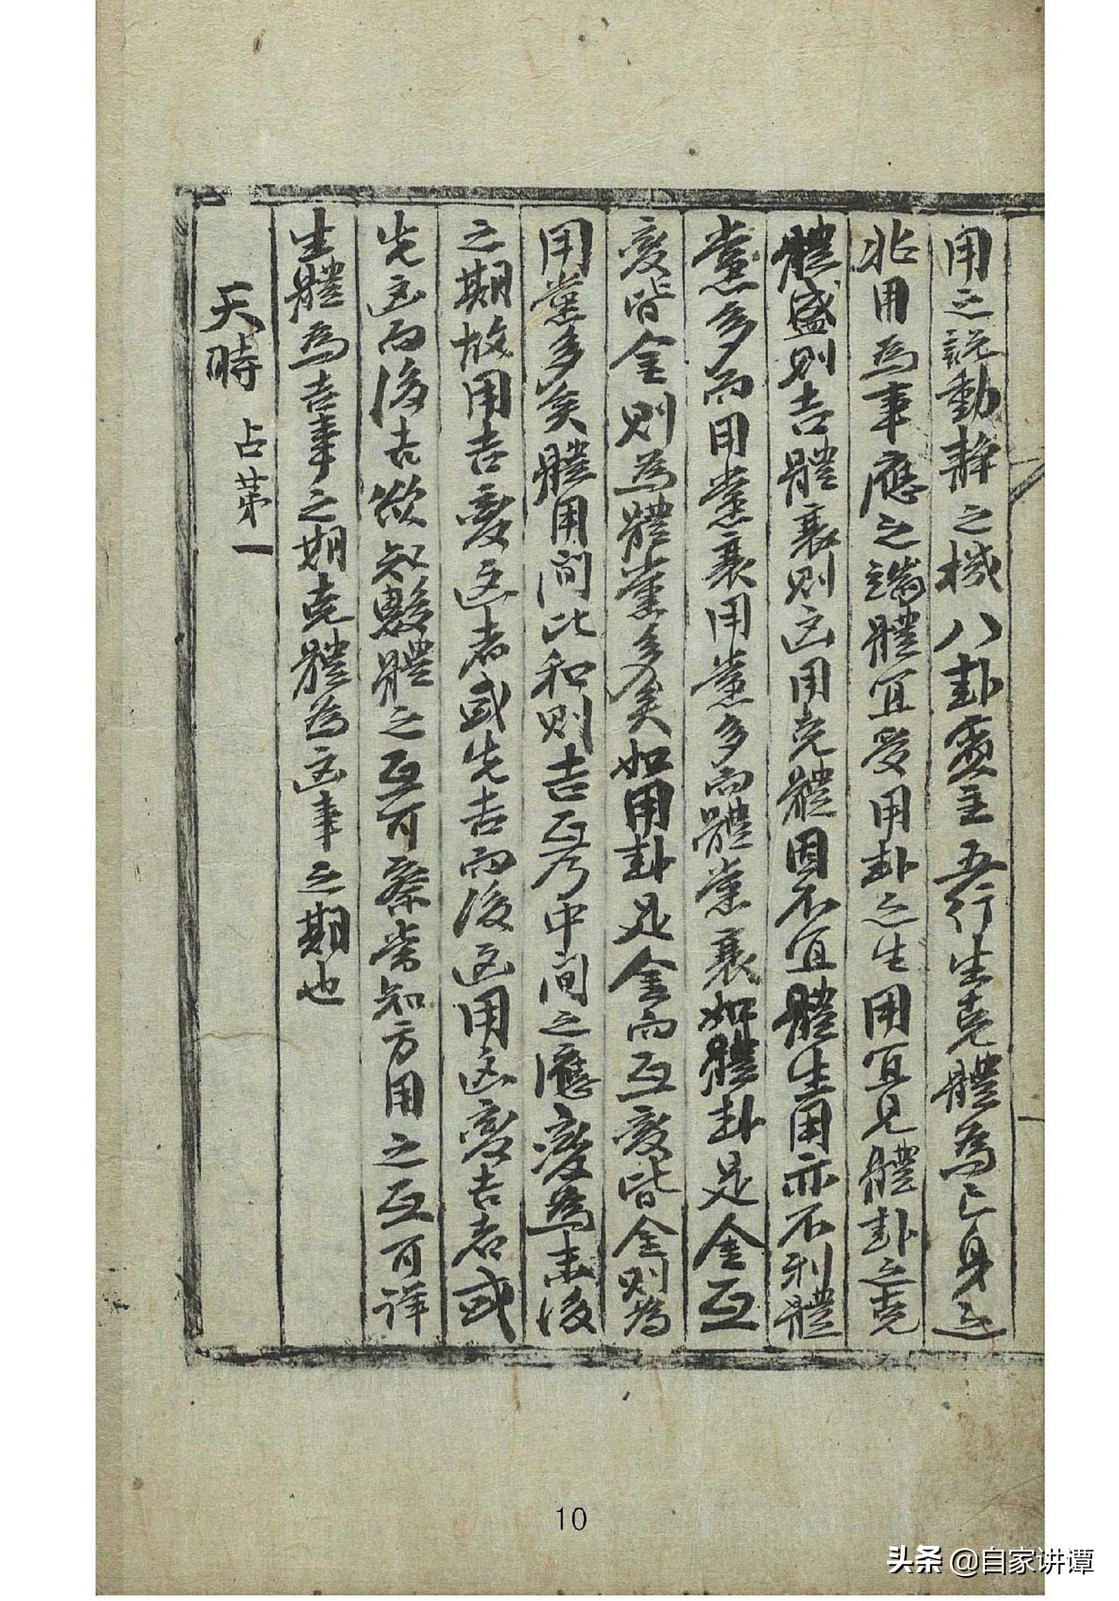 用之說動静之機八卦變主五行生克體為己身之
兆用為事應之端體宜受用卦之生用宜見體卦之克
體盛則吉體衰則凶用克體固不宜體生用亦不利體
黨多而用黨衰用黨多而體黨衰如體卦是金互
變皆金則為體黨多矣如用卦是金而互變皆金則為
用黨多矣體用間比和則吉互乃中間之應變為末後
之期故用吉變凶者或先吉而後凶用凶變吉者或
先凶而後吉欲知數體之互可察當知方用之互可詳
生體為吉事之期克體為凶事之期也
天時 占第一
10
头条 @自家讲谭